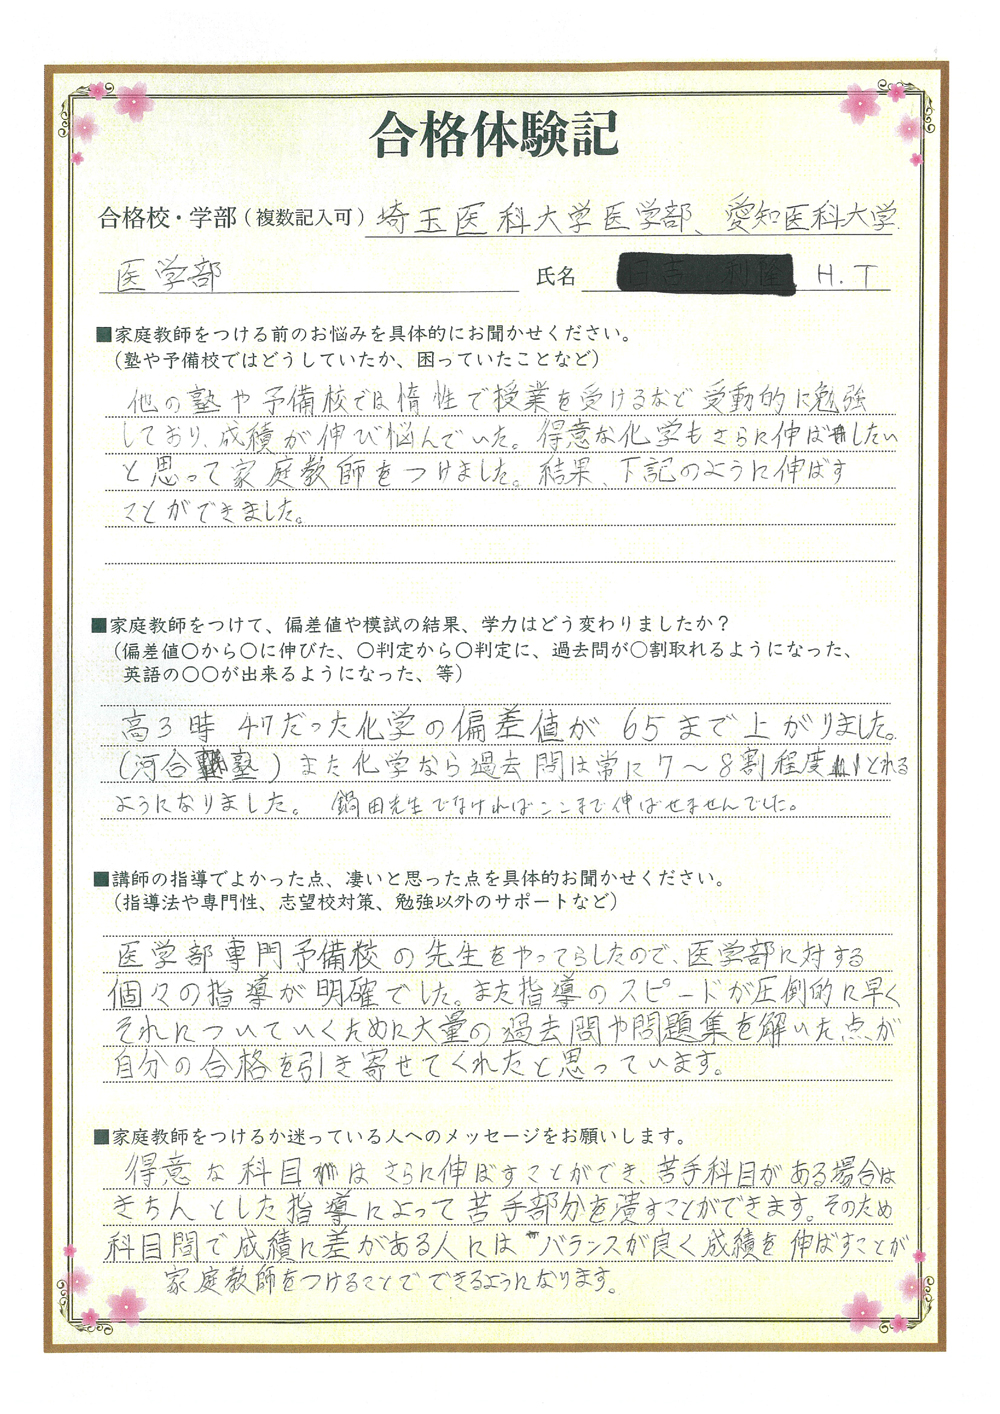 合格体験記
合格校・学部（複数記入可） 埼玉医科大学医学部、愛知医科大学
医学部 氏名 H.T
■家庭教師をつける前のお悩みを具体的にお聞かせください。
（塾や予備校ではどうしていたか、困っていたことなど）
他の塾や予備校では惰性で授業を受けるなど受動的に勉強
しており、成績が伸び悩んでいた。得意な化学もさらに伸ばしたい
と思って家庭教師をつけました。結果、下記のように伸ばす
ことができました。
■家庭教師をつけて、偏差値や模試の結果、学力はどう変わりましたか？
（偏差値〇から〇に伸びた、〇判定から〇判定に、過去問が〇割取れるようになった、
英語の〇〇が出来るようになった、等）
高3時 47だった化学の偏差値が 65まで上がりました。
(河合塾) また化学なら過去問は常に7〜8割程度とれる
ようになりました。 鍋田先生でなければここまで伸ばせませんでした。
■講師の指導でよかった点、凄いと思った点を具体的お聞かせください。
（指導法や専門性、志望校対策、勉強以外のサポートなど）
医学部専門予備校の先生をやってらしたので、医学部に対する
個々の指導が明確でした。また指導のスピードが圧倒的に早く
それについていくために大量の過去問や問題集を解いた点が
自分の合格を引き寄せてくれたと思っています。
■家庭教師をつけるか迷っている人へのメッセージをお願いします。
得意な科目はさらに伸ばすことができ、苦手科目がある場合は
きちんとした指導によって苦手部分を潰すことができます。そのため
科目間で成績に差がある人にはバランスが良く成績を伸ばすことが
家庭教師をつけることでできるようになります。